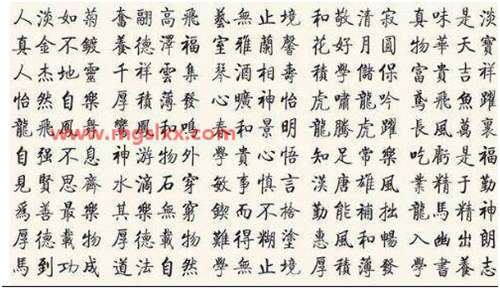 人淡如菊 奮翮高飛 藝無止境 和敬清寂 真味是淡
真金不鍍 養德澤福 室雅蘭馨 花好月圓 物華天寶
人杰地靈 千祥雲集 琴酒相壽 積學儲保 富貴吉祥
怡然自樂 厚積薄發 心曠神怡 虎嘯龍吟 鳶飛魚躍
龍飛鳳舞 鳴 春和景明 龍騰虎躍 長風萬裏
www.mgslxx.com
自强不息 神游物外 和貴心悟 知足常樂 吃虧是福
見賢思齊 水滴石穿 敏事慎言 漢唐雄風 業精于勤
爲善最樂 其樂無窮 鍥而不捨 勤能補拙 龍馬精神
厚德載物 厚德載物 難得糊塗 惠風和暢 入幽出朗
馬到功成 道法自然 學無止境 厚積薄發 學書養志